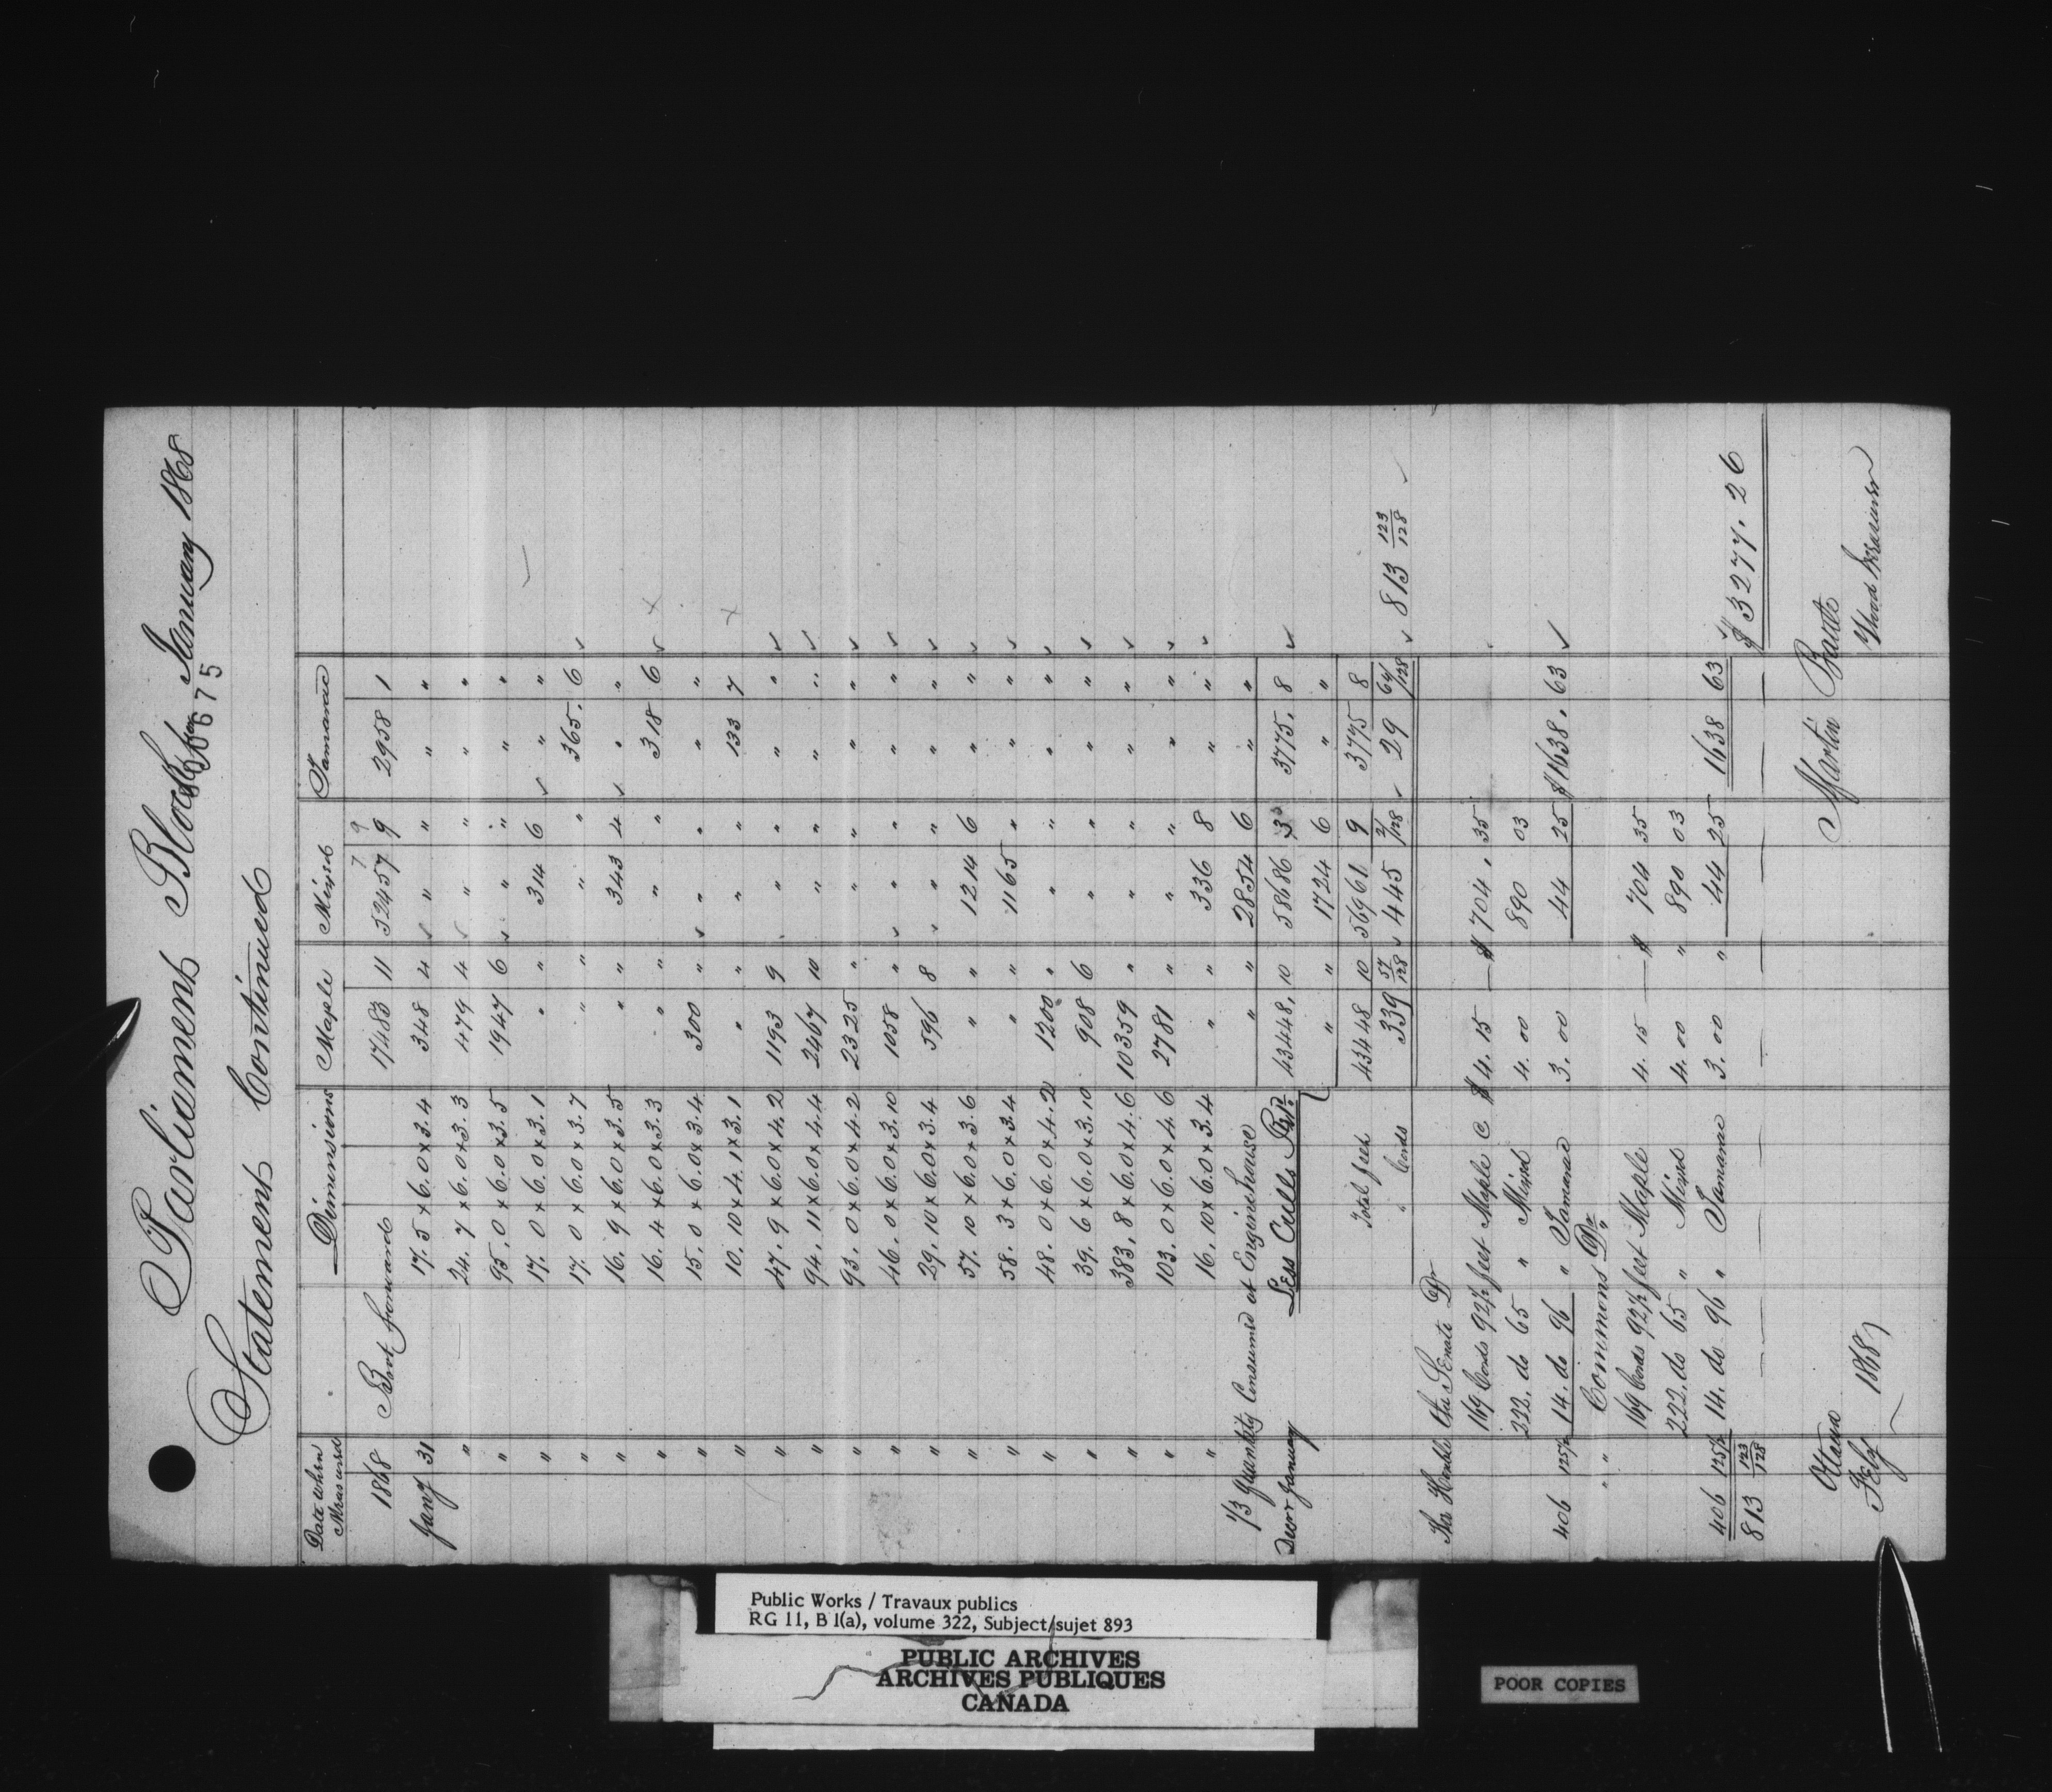 Parliament Block January 1868
86675
Statement Continued
Date when Measured Dimensions Maple Mixed Tamarac
1868 Brot forward 17483 11 52457 9 2958 1
Jany 31 17.5 x 6.0 x 3.4 348 4 " " " "
" 24.7 x 6.0 x 3.3 479 4 " " " "
" 95.0 x 6.0 x 3.5 1947 6 " " " "
" 17.0 x 6.0 x 3.1 " " 314 6 " "
" 17.0 x 6.0 x 3.7 " " " " 365. 6
" 16.9 x 6.0 x 3.5 " " 343 4 " "
" 16.4 x 6.0 x 3.3 " " " " 318 6
" 15.0 x 6.0 x 3.4 300 " " " " "
" 10.10 x 4.1 x 3.1 " " " " 133 7
" 47.9 x 6.0 x 4.2 1193 9 " " " "
" 94.11 x 6.0 x 4.4 2467 10 " " " "
" 93.0 x 6.0 x 4.2 2325 " " " " "
" 46.0 x 6.0 x 3.10 1058 " " " " "
" 29.10 x 6.0 x 3.4 596 8 " " " "
" 57.10 x 6.0 x 3.6 " " 1214 6 " "
" 58.3 x 6.0 x 3.4 " " 1165 " " "
" 48.0 x 6.0 x 4.2 1200 " " " " "
" 39.6 x 6.0 x 3.10 908 6 " " " "
" 383.8 x 6.0 x 4.6 10359 " " " " "
" 103.0 x 6.0 x 4.6 2781 " " " " "
" 16.10 x 6.0 x 3.4 " " 336 8 " "
1/3 Quantity Consumed at Enginehouse " " 2854 6 " "
Decr & January Less Culls 43448. 10 58686 3 3775. 8
" " 1724 6 " "
Total feet 43448 10 56961 9 3775 8
" Cords 339 57/128 445 2/128 29 64/128 813 123/128
The Honble the Senate Dr
169 Cords 92½ feet Maple @ $4.15 $704. 35
222. do 65 " Mixed 4.00 890 03
406 125½ 14. do 96 " Tamarac 3.00 44 25 $1638. 63
" " Commons Dr
169 Cords 92½ feet Maple 4.15 $704 35
222. do 65 " Mixed 4.00 " 890 03
406 125½ 14. do 96 " Tamarac 3.00 " 44 25 1638 63
813 123/128 $3277. 26
Ottawa
Feby 1868
Martin Battle
Wood Measurer
Public Works / Travaux publics
RG 11, B 1(a), volume 322, Subject/sujet 893
PUBLIC ARCHIVES
ARCHIVES PUBLIQUES
CANADA
POOR COPIES